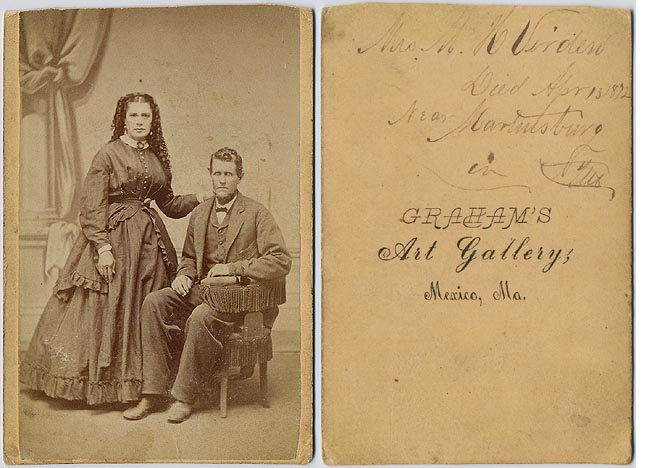 Mrs. M. K Virden
Died Apr 13 1872
Near Martinsburg
in
GRAHAM'S
Art Gallery,
Mexico, Mo.